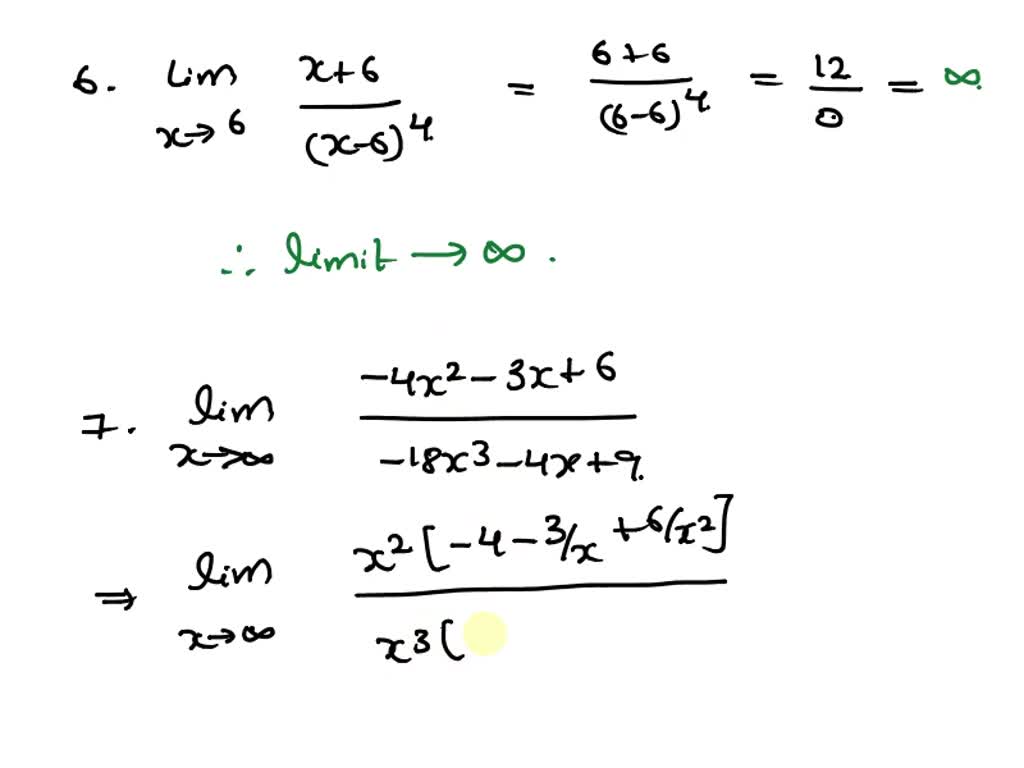 6. Lim x→6 x+6/(x-6)^4 = 6+6/(6-6)^4 = 12/0 = ∞.
∴ limit → ∞.
7. lim x→∞ -4x²-3x+6/-18x³-4x+9.
⇒ lim x→∞ x²[-4-3/x+6/x²]/x³[